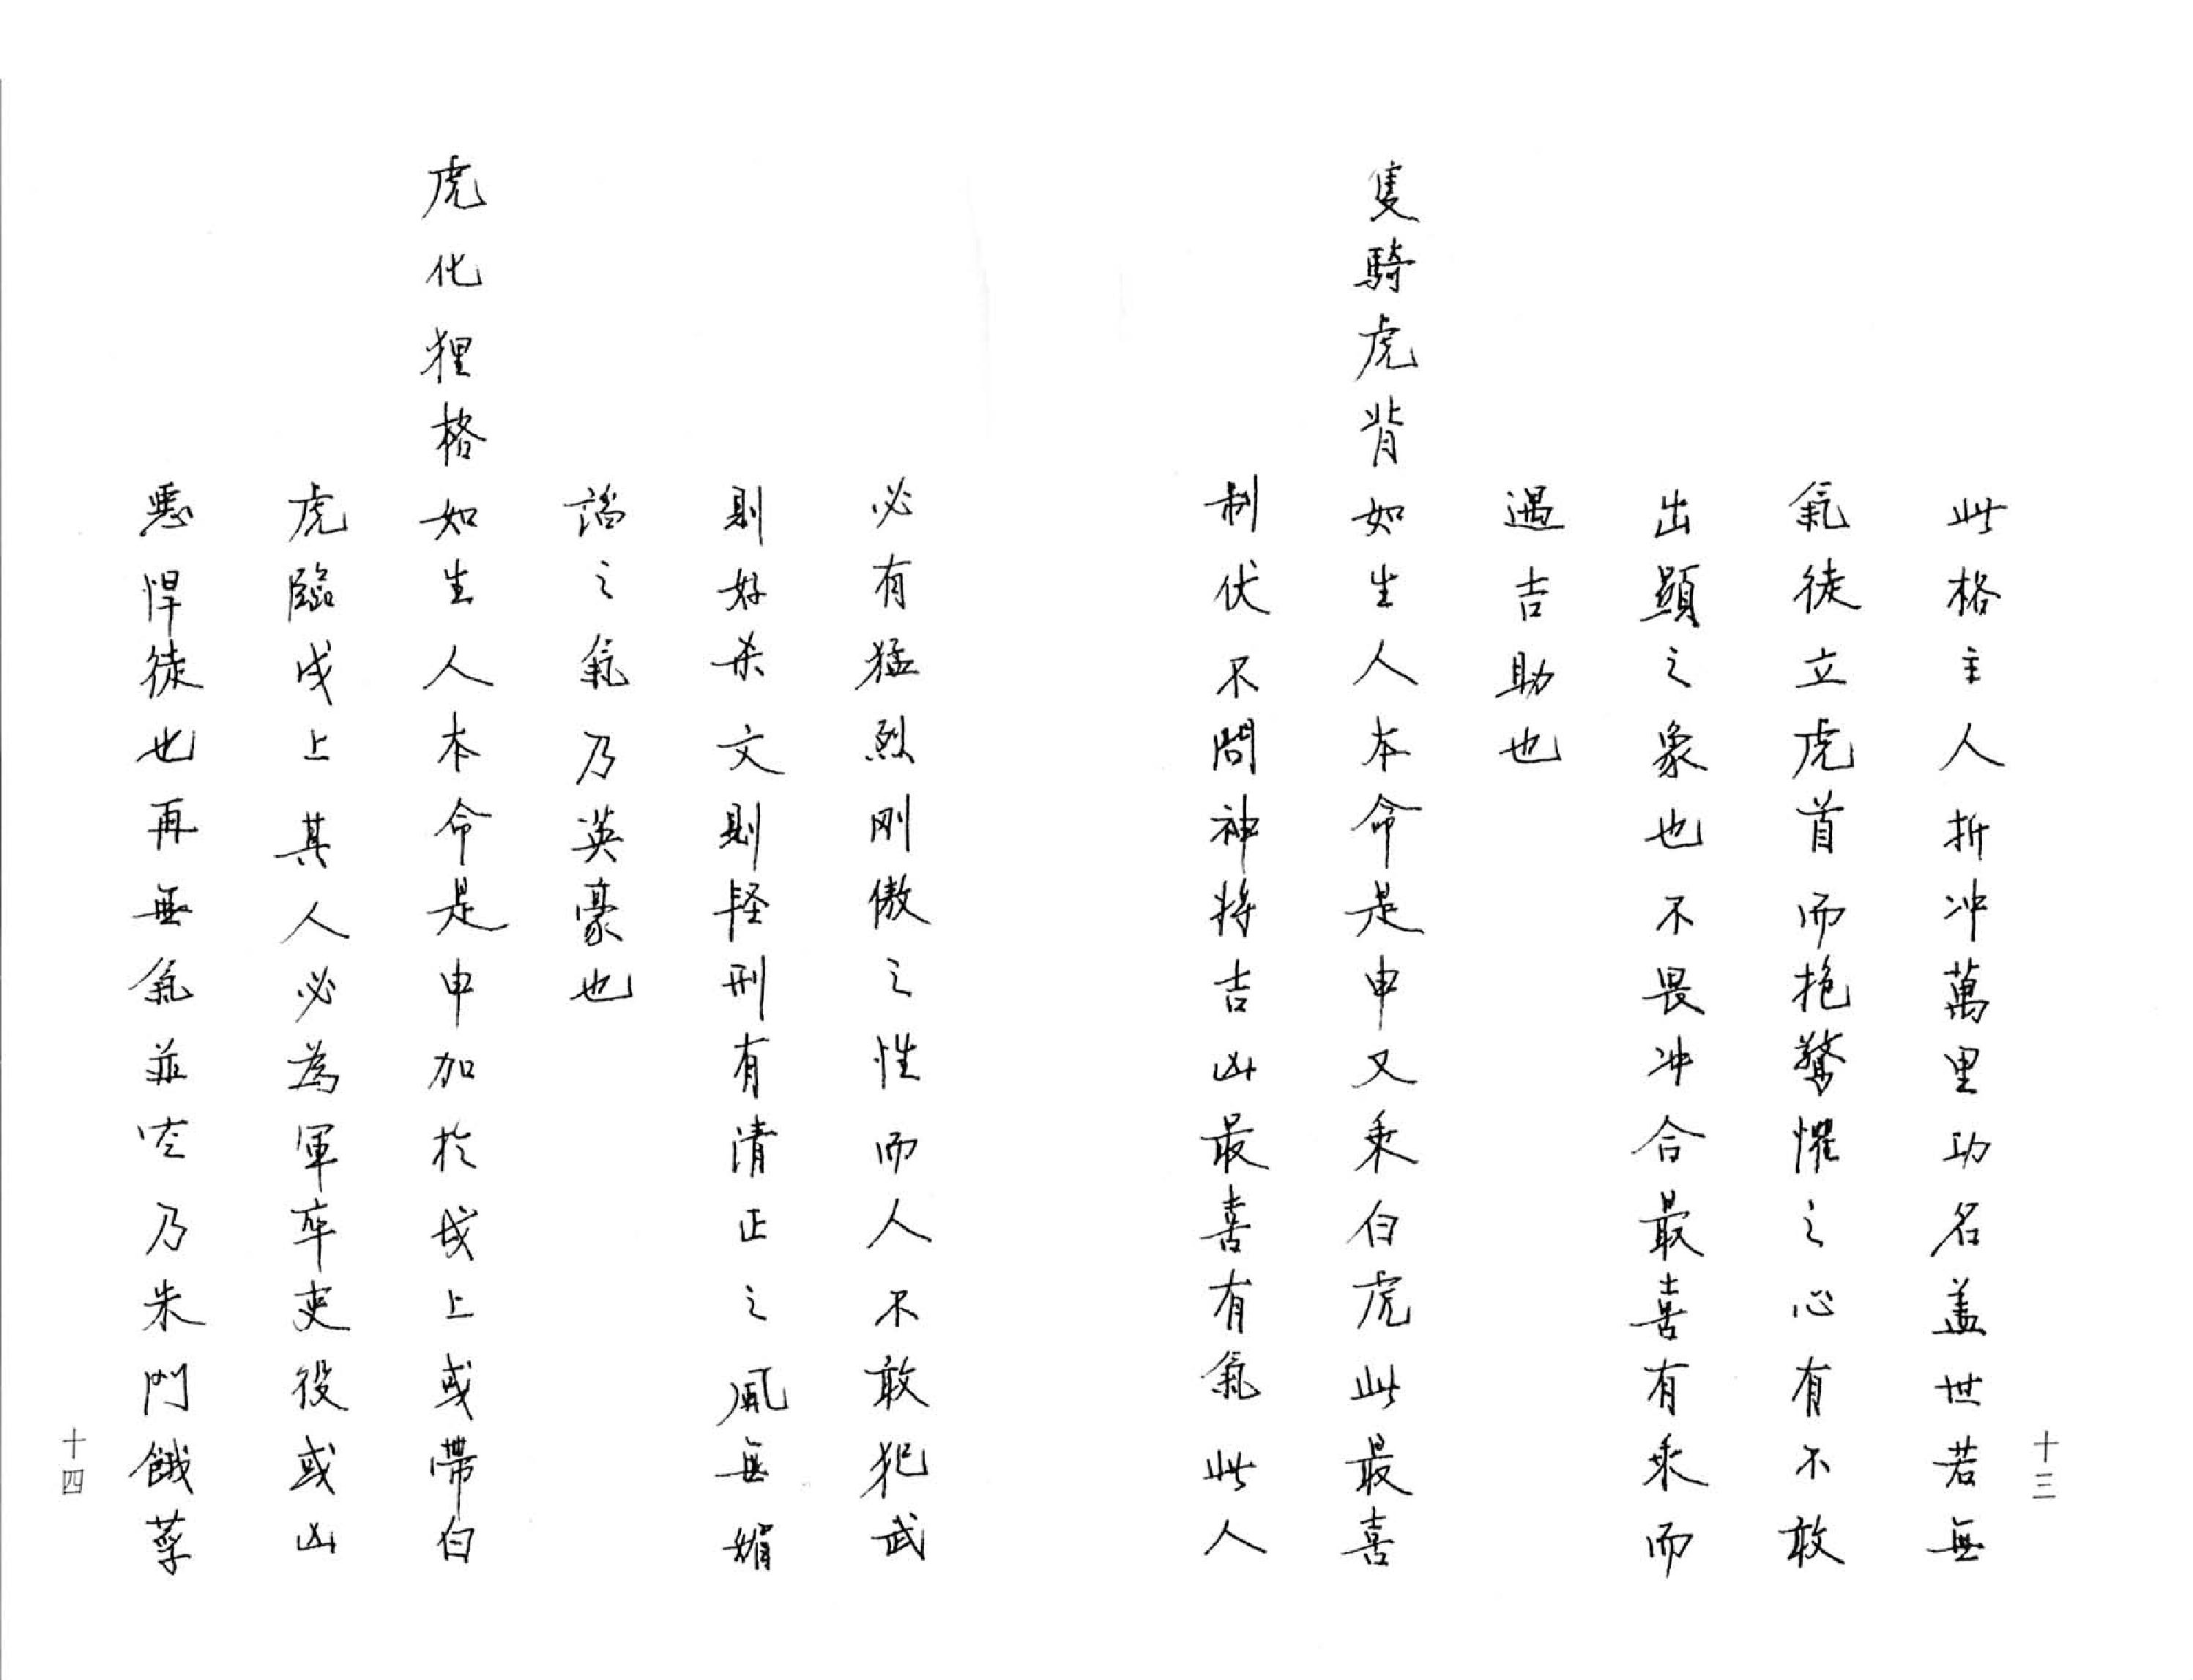 十三
此格主人折冲萬里功名盖世若無
氣徒立虎首而抱驚懼之心有不敢
出顯之象也不畏冲合最喜有乘而
遇吉助也
隻騎虎背如生人本命是申又乘白虎此最喜
制伏不問神将吉凶最喜有氣此人
必有猛烈刚傲之性而人不敢犯武
則好杀文則 刑有清正之風無媚
謟之氣乃英豪也
虎化狸格如生人本命是申加於戌上或帶白
虎臨戌上其人必為軍卒吏役或凶
悪悍徒也再無氣並空乃朱門餓莩
十四